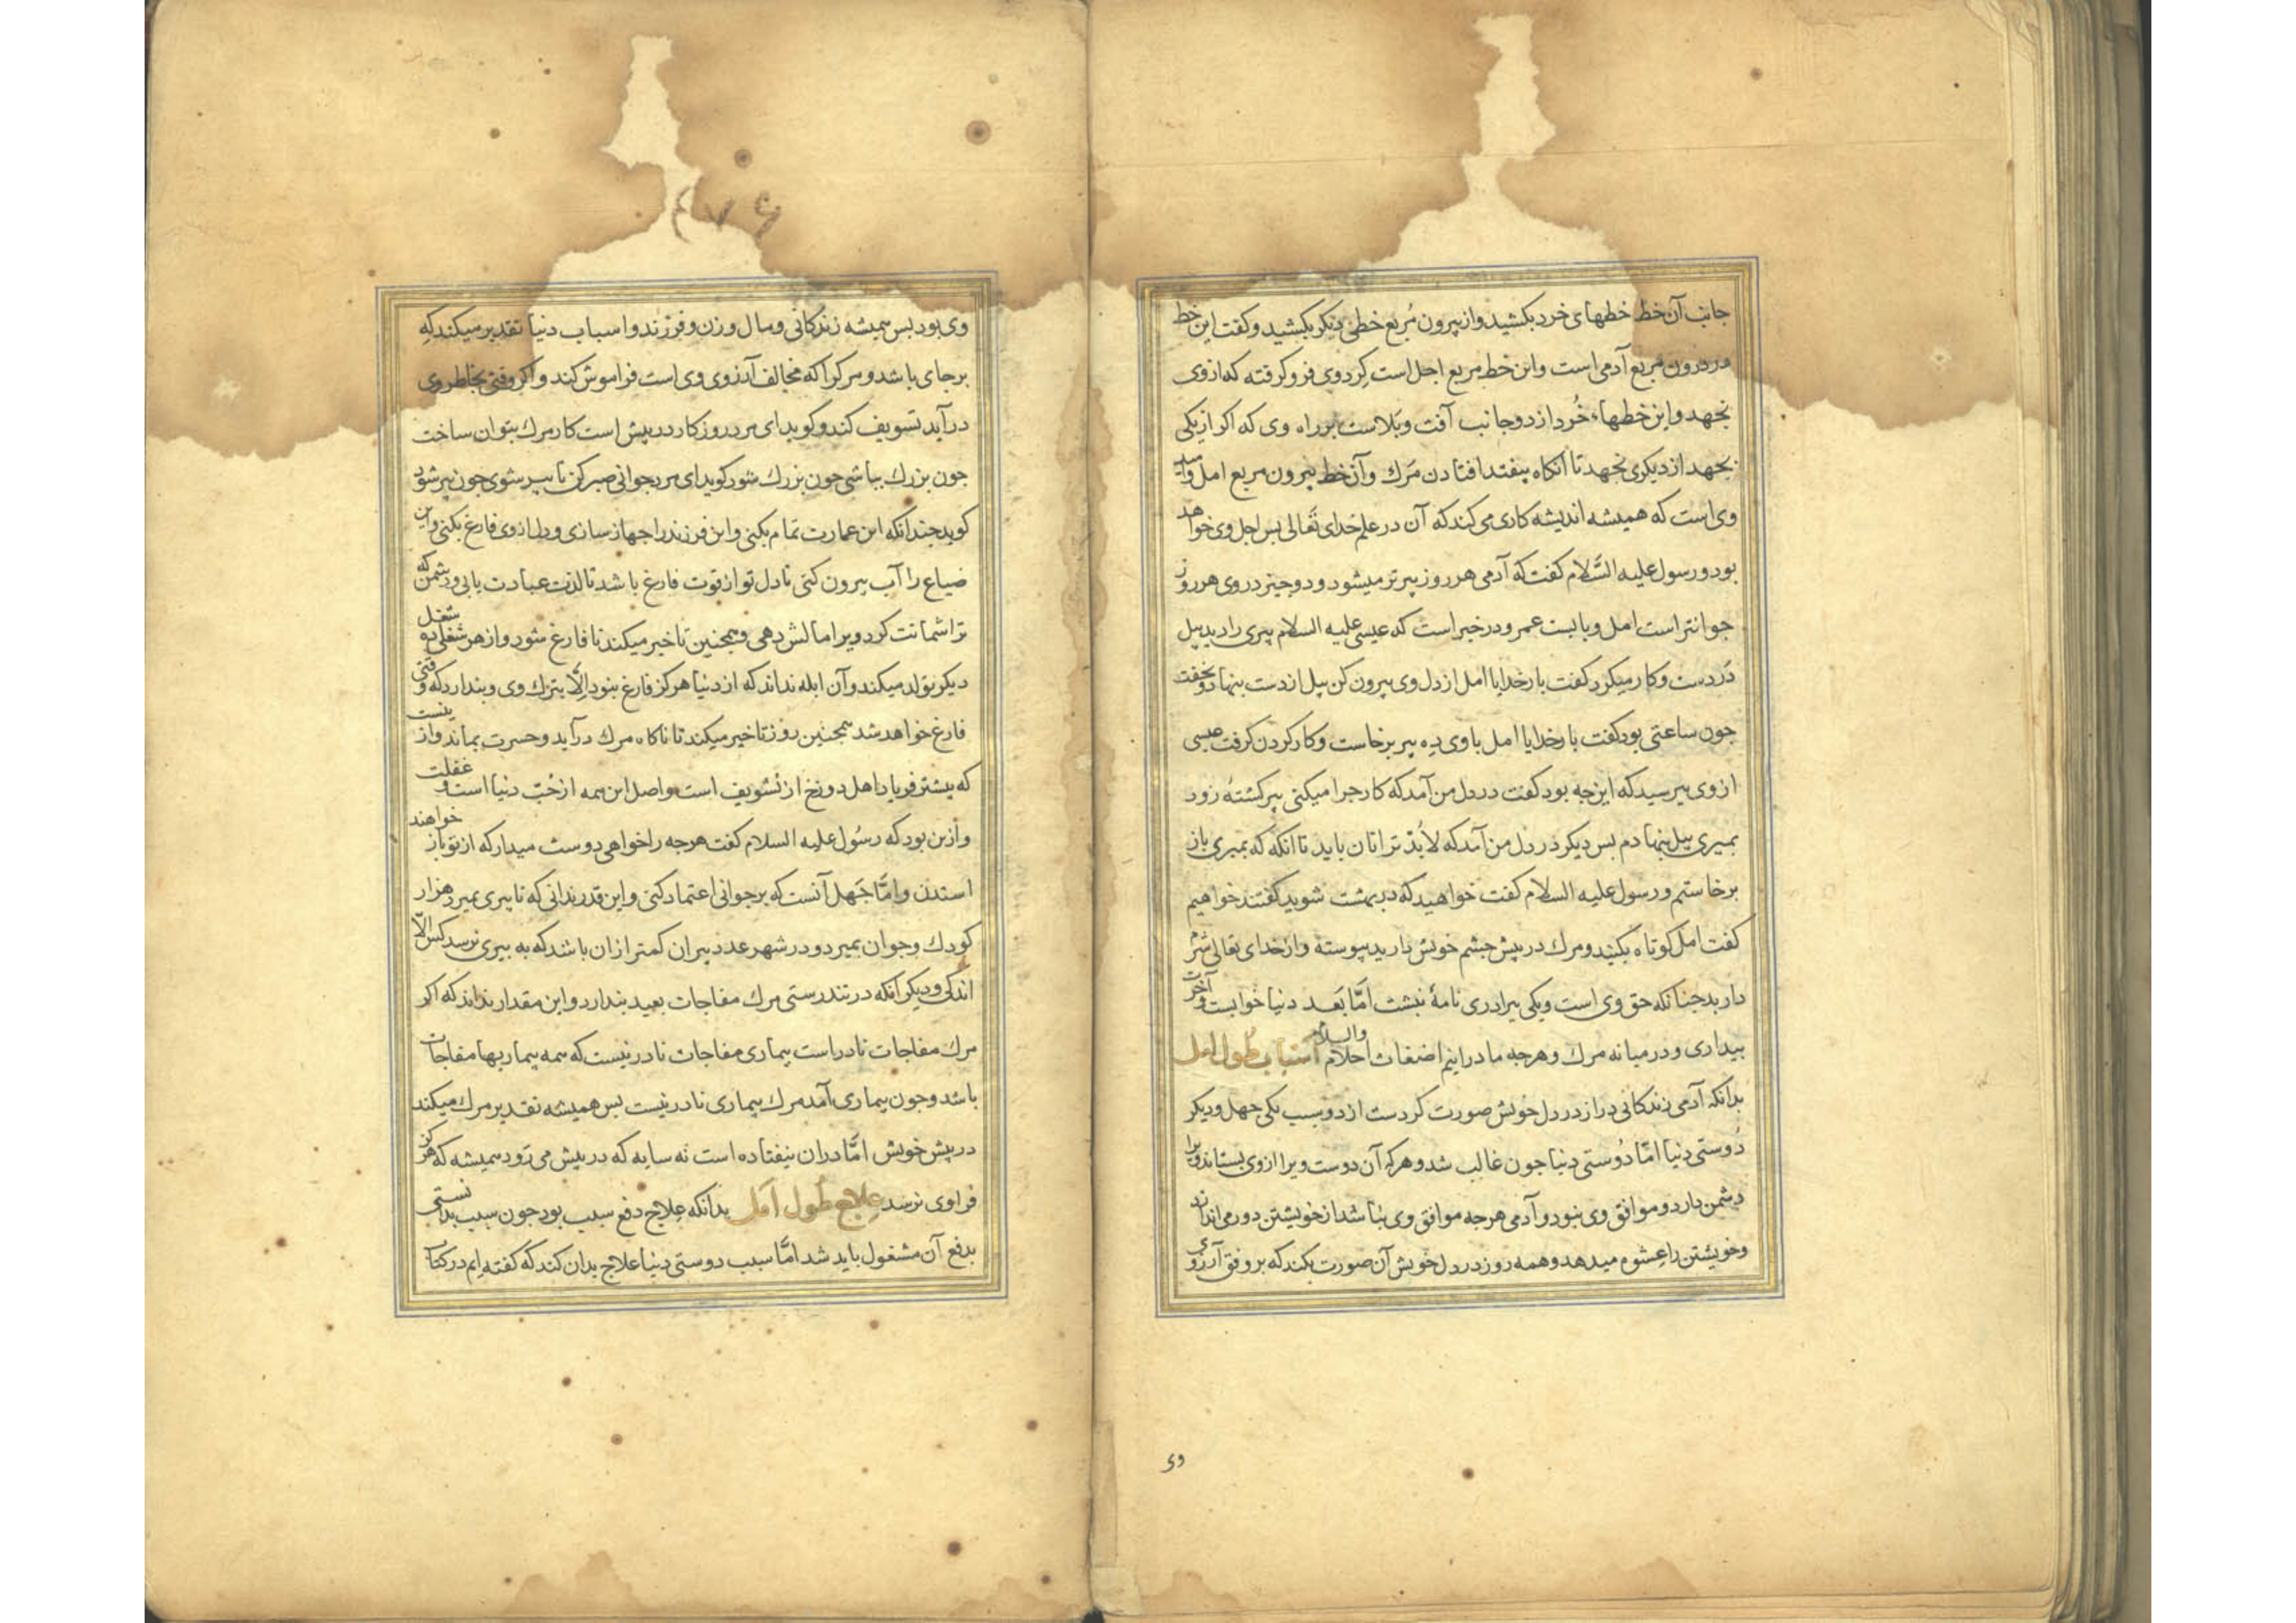 جانب آن خط خطهای خرد بکشید و از بیرون مُربع خطی دیکر بکشید و کفت این خط
در درون مربع آدمی است و این خط مربع اجل است کرد وی فرو کرفته که از وی
نجهد و این خطهاء خُرد از دو جانب آفت و بَلاست بر راه وی که اکر از یکی
بجهد از دیکری نجهد تا آنکاه بیفتد افتادن مَرك و آن خط بیرون مربع امل و امید
وی است که همیشه اندیشه کاری می کند که آن در علم خدای تَعالی بس اجل وی خواهد
بود و رسول علیه السَّلام کفت که آدمی هر روز پیرتر میشود و دو چیز در وی هر روز
جوانتر است امل و بایست عمر و در خبر است که عیسی علیه السلام پیری را دید بیل
دَر دست و کار میکرد کفت بار خدایا امل از دل وی بیرون کن بیل از دست بنهاد و بخفت
جون ساعتی بود کفت بار خدایا امل با وی دِه پیر برخاست و کار کردن کرفت عیسی
از وی بپرسید که این جه بود کفت در دل من آمد که کار جرا میکنی پیر کشتهٔ زود
بمیری بیل بنهادم بس دیکر در دل من آمد که لابُدّ ترا نان باید تا آنکه که بمیری باز
برخاستم و رسول علیه السلام کفت خواهید که در بهشت شوید کفتند خواهیم
کفت امل کوتاه بکنید و مرك در پیش جشم خویش دارید پیوسته و از خدای تعالی شرم
دارید جنانکه حق وی است و یکی ببرادری نامهٔ نبشت امَّا بَعد دنیا خوابست و آخرت
بیداری و در میانه مرك و هرجه ما دراینم اضغاث احلام والسلام اسباب طول امل
بدانکه آدمی زندکانی دراز در دل خویش صورت کردست از دو سبب یکی جهل و دیکر
دُوستی دنیا امَّا دُوستی دنیا جون غالب شد و هرکه آن دوست ویرا از وی بستاند ویرا
دشمن دارد و موافق وی نبود و آدمی هرجه موافق وی نباشد از خویشتن دور می اندازد
و خویشتن را عشوه میدهد و همه روز در دل خویش آن صورت بکند که بر وفق آرزوی
وی
۲۷۶
وی بود بس همیشه زندکانی و مال و زن و فرزند و اسباب دنیا تقدیر میکند که
برجای باشد و مرك را که مخالف آرزوی وی است فراموش کند و اکر وقتی بخاطر وی
درآید تسویف کند و کوید ای مرد روزکار در پیش است کار مرك بتوان ساخت
جون بزرك بباشی جون بزرك شود کوید ای مرد جوانی صبر کن تا پیر شوی جون پیر شود
کوید جندانکه این عمارت تمام بکنی و این فرزند را جهاز سازی و دل از وی فارغ بکنی و این
ضیاع را آب بیرون کنی تا دل تو از قوت فارغ باشد تا لذت عبادت یابی و دشمن که
ترا شماتت کرد ویرا مالش دهی و همجنین تاخیر میکند تا فارغ شود و از هر شغلی ده شغل
دیکر تولد میکند و آن ابله نداند که از دنیا هرکز فارغ نبود اِلّا بترك وی و پندارد که وقتی
فارغ خواهد شد همجنین روز تاخیر میکند تا ناکاه مرك درآید و حسرت بماند و از ینست
که بیشتر فریاد اهل دوزخ از تسویف است و اصل این همه از حُبّ دنیا است و غفلت
و ازین بود که رسُول علیه السلام کفت هرجه را خواهی دوست میدار که از تو باز خواهند
استدن و امَّا جَهل آنست که بر جوانی اعتماد کنی و این قدر ندانی که تا پیری بمیرد هزار
کودك و جوان بمیرد و در شهر عدد پیران کمتر از ان باشد که به پیری نرسد کس الّا
اندکی و دیکر آنکه در تندرستی مرك مفاجات بعید پندارد و این مقدار نداند که اکر
مرك مفاجات نادر است بیماری مفاجات نادر نیست که همه بیماریها مفاجات
باشد و جون بیماری آمد مرك بیماری نادر نیست بس همیشه تقدیر مرك میکند
در پیش خویش امَّا در ان نیفتاده است نه سایه که در پیش می رَود همیشه که هرکز
فراوی نرسد علاج طُول امَل بدانکه عِلاج دفع سبب بود جون سبب بدانستی
بدفع آن مشغول باید شد امَّا سبب دوستی دنیا علاج بدان کند که کفته ایم در کتاب